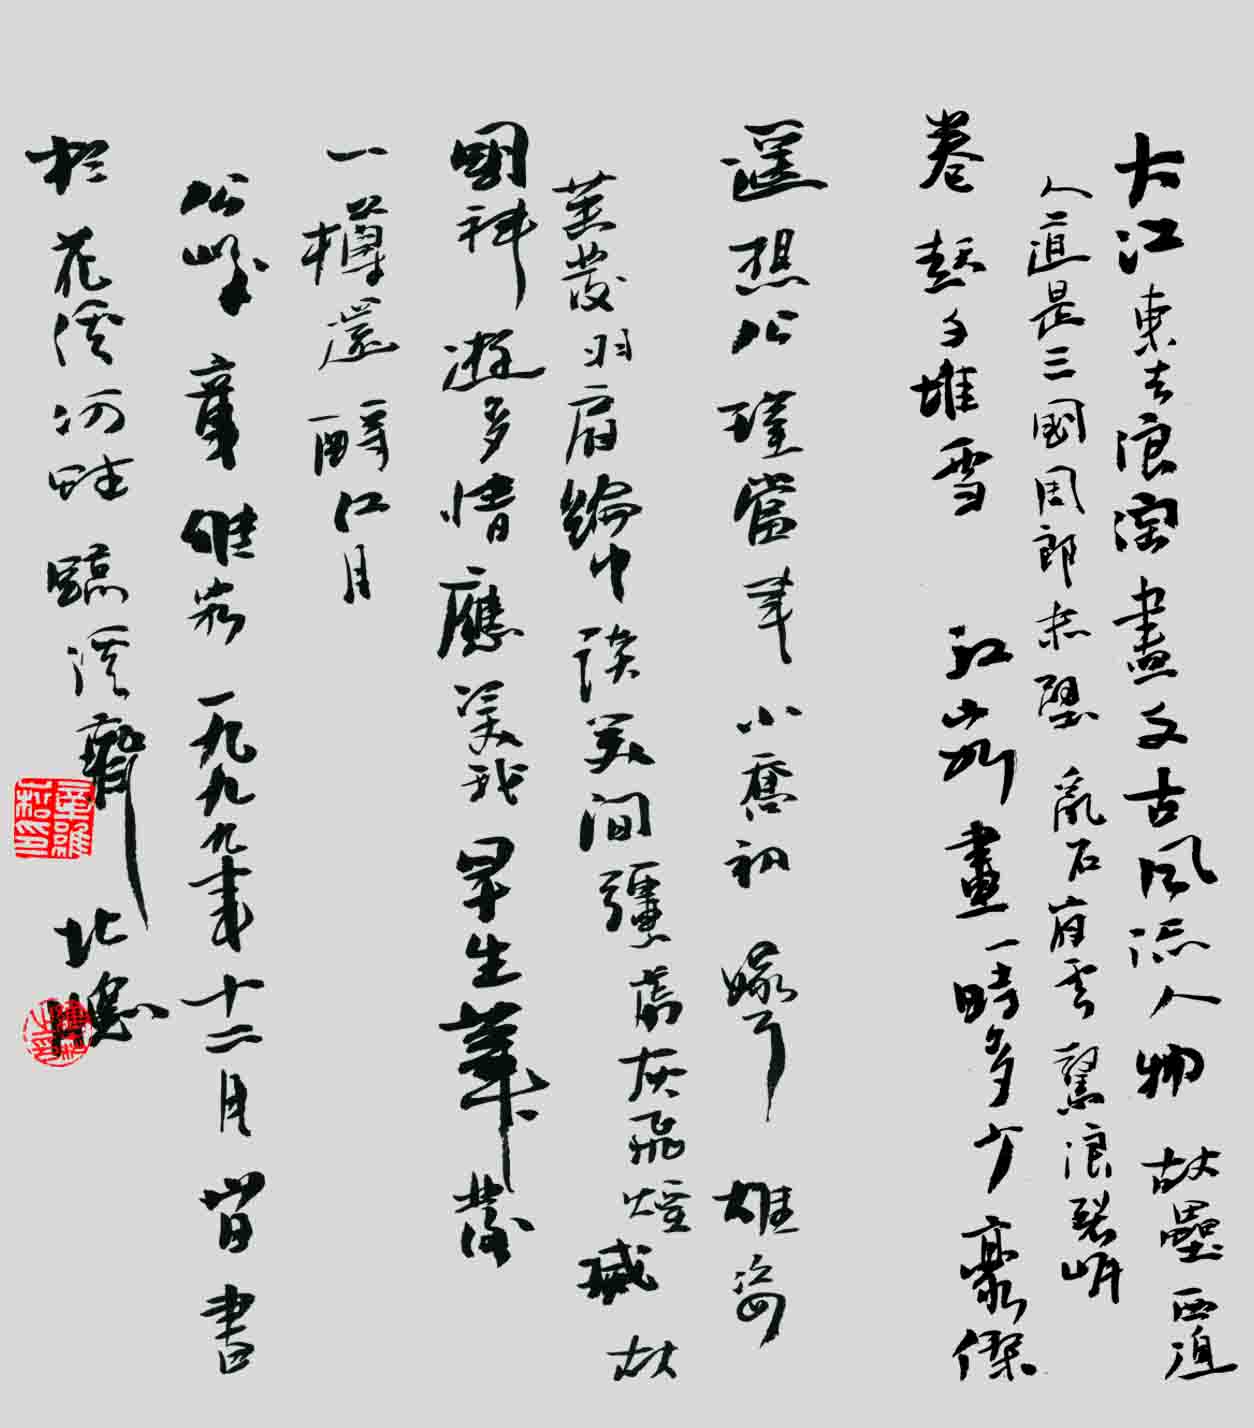 大江東去浪淘盡千古風流人物 故壘西邊
人道是三國周郎赤壁 亂石崩雲 驚浪裂岸
卷起千堆雪 江山如畫一時多少豪傑
遥想公瑾當年 小喬初嫁了 雄姿
英發羽扇綸巾談笑間強虜灰飛煙滅故
國神遊多情應笑我早生華髮
一樽還酹江月
公 章雄 一九九九年十二月 書
於花溪河畔 臨溪齋 北窗